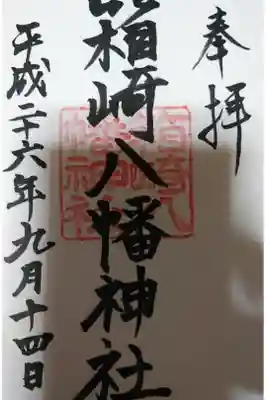 奉拝
箱崎八幡神社
平成二十六年九月十四日